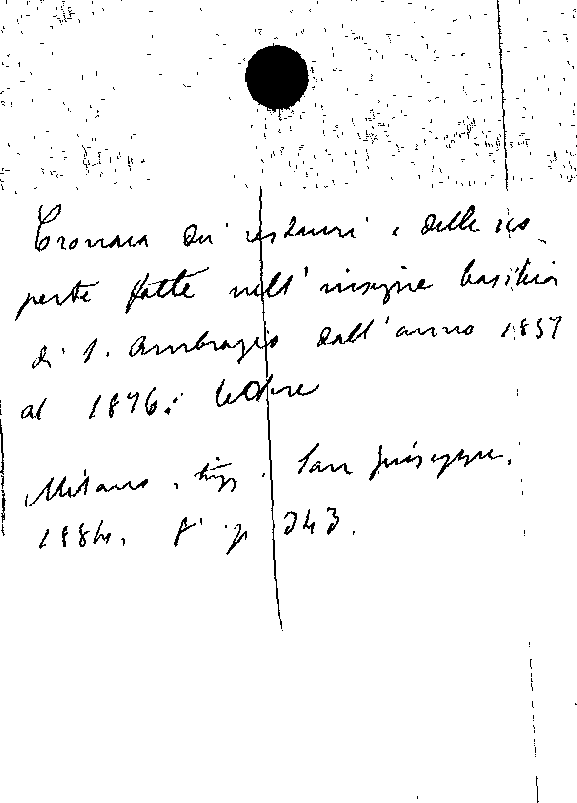 Cronaca dei restauri e delle sco-
perte fatte nell'insigne basilica
di S. Ambrogio dall'anno 1857
al 1876: lettere
Milano, tip. San Giuseppe,
1884. 8° p. 243.